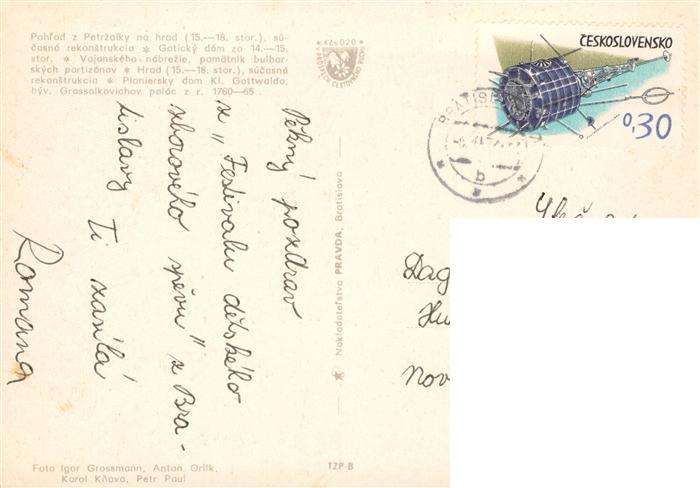 Pohľad z Petržalky na hrad (15.—18. stor.), sú-
časná rekonštrukcia ✶ Gotický dóm zo 14.—15.
stor. ✶ Vajanského nábrežie, pamätník bulhar-
ských partizánov ✶ Hrad (15.—18. stor.), súčasná
rekonštrukcia ✶ Pioniersky dom Kl. Gottwalda,
býv. Grassalkovichov palác z r. 1760—65
Kčs 0,20
ČESKOSLOVENSKO
0,30
BRATISL
Pěkný pozdrav
z „Festivalu dětského
sborového zpěvu" z Bra-
tislavy Ti zasílá
Romana
✶ Nakladateľstvo PRAVDA, Bratislava
Dag
Hu
Nov
Foto Igor Grossmann, Anton Orlík,
Karol Kňava, Petr Paul
TZP-B